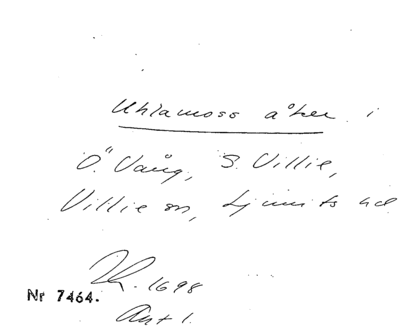 Uhlamoss åker i
Ö. Vång, S. Villie,
Villie sn, Ljunits hd
Lh. 1698
Nr 7464.
Akt 1.